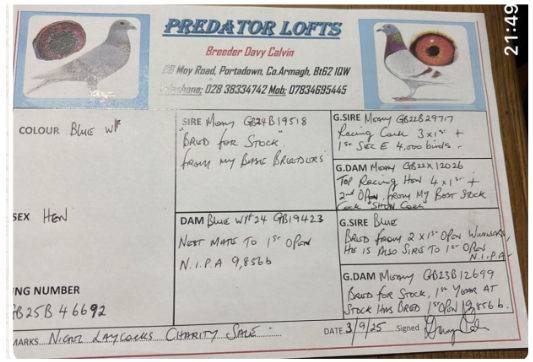 PREDATOR LOFTS
Breeder Davy Calvin
Moy Road, Portadown, Co.Armagh, Bt62 1QW
028 38334742 Mob: 07834695445
21:49
COLOUR Blue W/F
SEX Hen
NG NUMBER
GB25B 46692
MARKS Nigel Laycocks Charity Sale
SIRE Mealy GB24B19518
"Bred for Stock"
from my Base Breeders
DAM Blue W/F 24 GB19423
Nest mate to 1st Open
N.I.P.A 9,856b
G.SIRE Mealy GB22B29717
Racing Cock 3x1st +
1st Sec E 4,000 birds.
G.DAM Mealy GB22X12026
Top Racing Hen 4x1st +
2nd Open. from my Best Stock
Cock "Show Cock"
G.SIRE Blue
Bred from 2x1st Open Winners,
He is also Sire to 1st Open
N.I.P.A
G.DAM Mealy GB23B12699
Bred for Stock, 1st Year at
Stock has Bred 1st Open 9,856b.
DATE 3/9/25 Signed